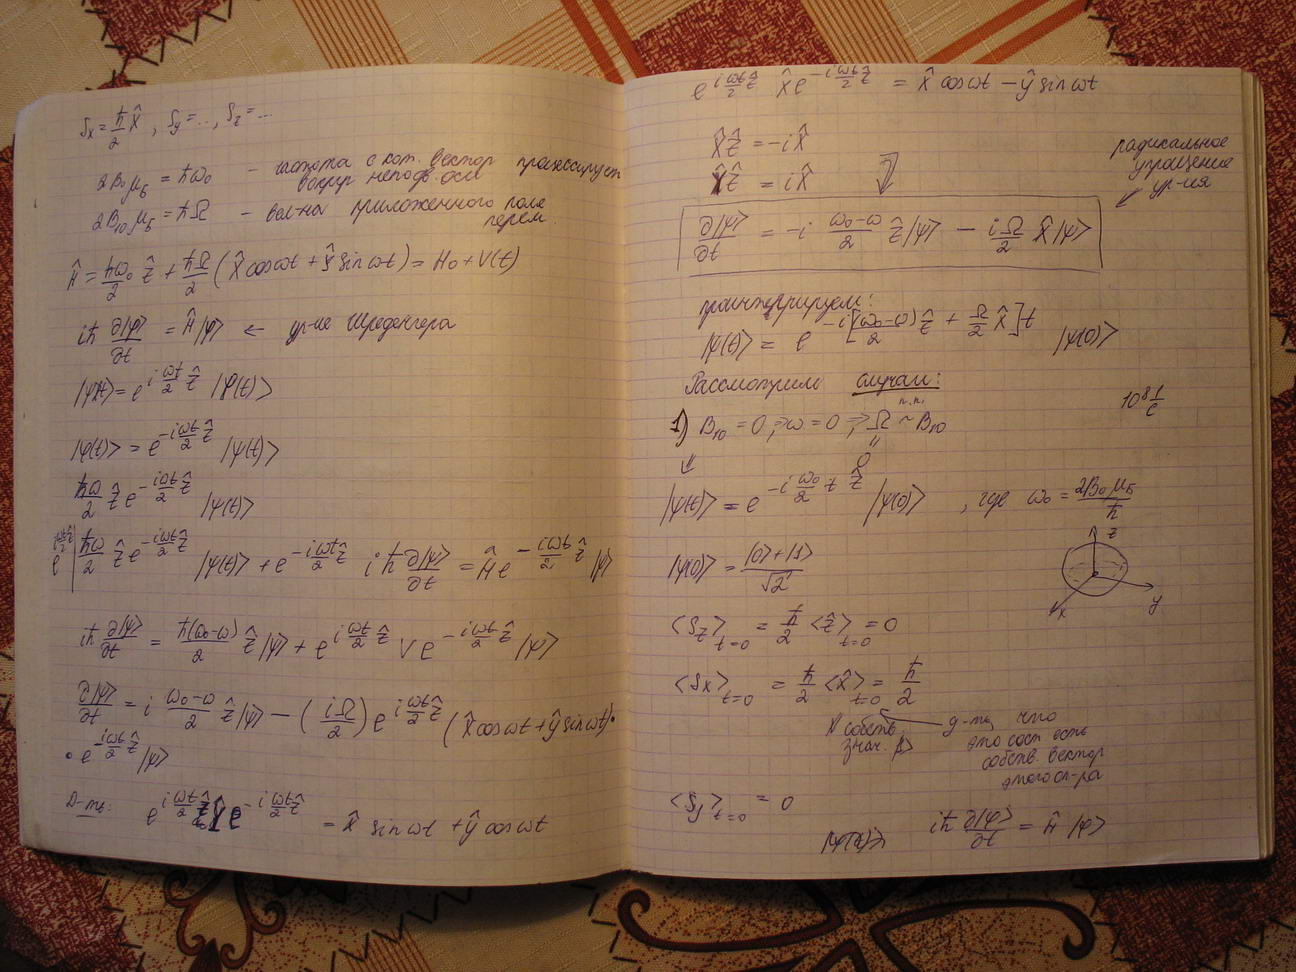 Sx = ħ/2 X̂ , Sy = ... , Sz = ...
2B₀μ_Б = ħω₀ – частота с кот. вектор прецессирует
вокруг неподв. оси
2B₁₀μ_Б = ħΩ – вел-на приложенного поля
перем.
Ĥ = ħω₀/2 Ẑ + ħΩ/2 (X̂ cosωt + Ŷ sinωt) = H₀ + V(t)
iħ ∂|φ⟩/∂t = Ĥ|φ⟩ ← ур-ие Шредингера
|ψ(t)⟩ = e^{i ωt/2 Ẑ} |φ(t)⟩
|φ(t)⟩ = e^{-i ωt/2 Ẑ} |ψ(t)⟩
ħω/2 Ẑ e^{-i ωt/2 Ẑ} |ψ(t)⟩
e^{i ωt/2 Ẑ} | ħω/2 Ẑ e^{-i ωt/2 Ẑ} |ψ(t)⟩ + e^{-i ωt/2 Ẑ} iħ ∂|ψ⟩/∂t = Ĥ e^{-i ωt/2 Ẑ} |ψ⟩
iħ ∂|ψ⟩/∂t = ħ(ω₀-ω)/2 Ẑ|ψ⟩ + e^{i ωt/2 Ẑ} V e^{-i ωt/2 Ẑ} |ψ⟩
∂|ψ⟩/∂t = i ω₀-ω/2 Ẑ|ψ⟩ – (iΩ/2) e^{i ωt/2 Ẑ} (X̂ cosωt + Ŷ sinωt)·
· e^{-i ωt/2 Ẑ} |ψ⟩
Д-ть: e^{i ωt/2 Ẑ} Ŷ e^{-i ωt/2 Ẑ} = X̂ sinωt + Ŷ cosωt
e^{i ωt/2 Ẑ} X̂ e^{-i ωt/2 Ẑ} = X̂ cosωt – Ŷ sinωt
X̂Ẑ = -iX̂
ŶẐ = iX̂
радикальное
упрощение
ур-ия
∂|ψ⟩/∂t = -i ω₀-ω/2 Ẑ|ψ⟩ – iΩ/2 X̂|ψ⟩
проинтегрируем:
|ψ(t)⟩ = e^{-i[(ω₀-ω)/2 Ẑ + Ω/2 X̂]t} |ψ(0)⟩
Рассмотрим случаи:
п.п.
10⁸ 1/с
1) B₁₀ = 0, ⇒ ω = 0 ⇒, Ω ~ B₁₀
"
0
|ψ(t)⟩ = e^{-i ω₀/2 t Ẑ} |ψ(0)⟩ , где ω₀ = 2B₀μ_Б/ħ
z
y
x
|ψ(0)⟩ = |0⟩+|1⟩/√2
⟨Sz⟩_{t=0} = ħ/2 ⟨Ẑ⟩_{t=0} = 0
⟨Sx⟩_{t=0} = ħ/2 ⟨X̂⟩_{t=0} = ħ/2
собств.
знач.
д-ть, что
это сост есть
собств. вектор
этого оп-ра
⟨Sy⟩_{t=0} = 0
iħ ∂|φ⟩/∂t = Ĥ |φ⟩